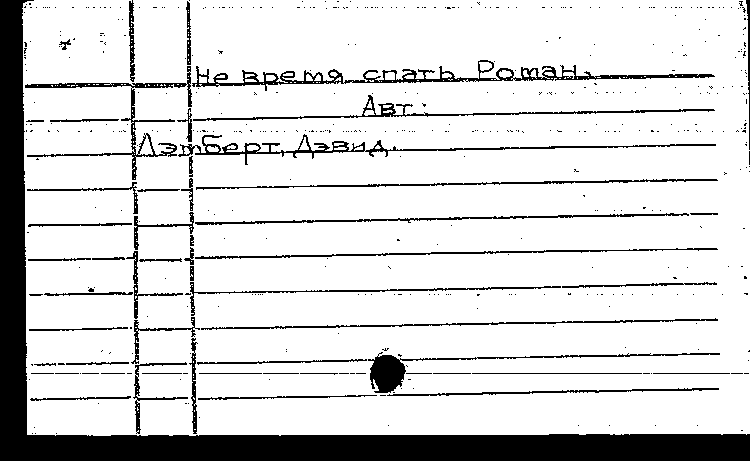 Не время спать Роман.
Авт.:
Лэмберт, Дэвид.